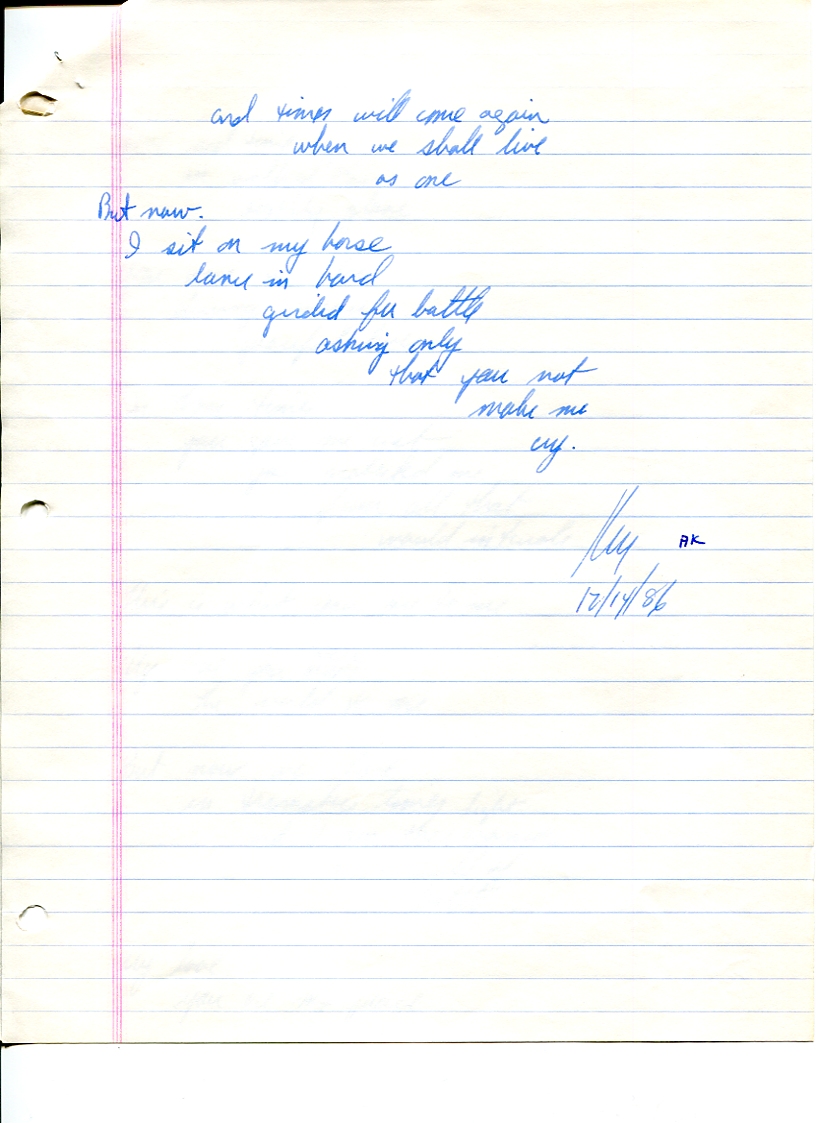 and times will come again
when we shall live
as one
But now.
I sit on my horse
lance in hand
girded for battle
asking only
that you not
make me
cry.
AK
12/14/86